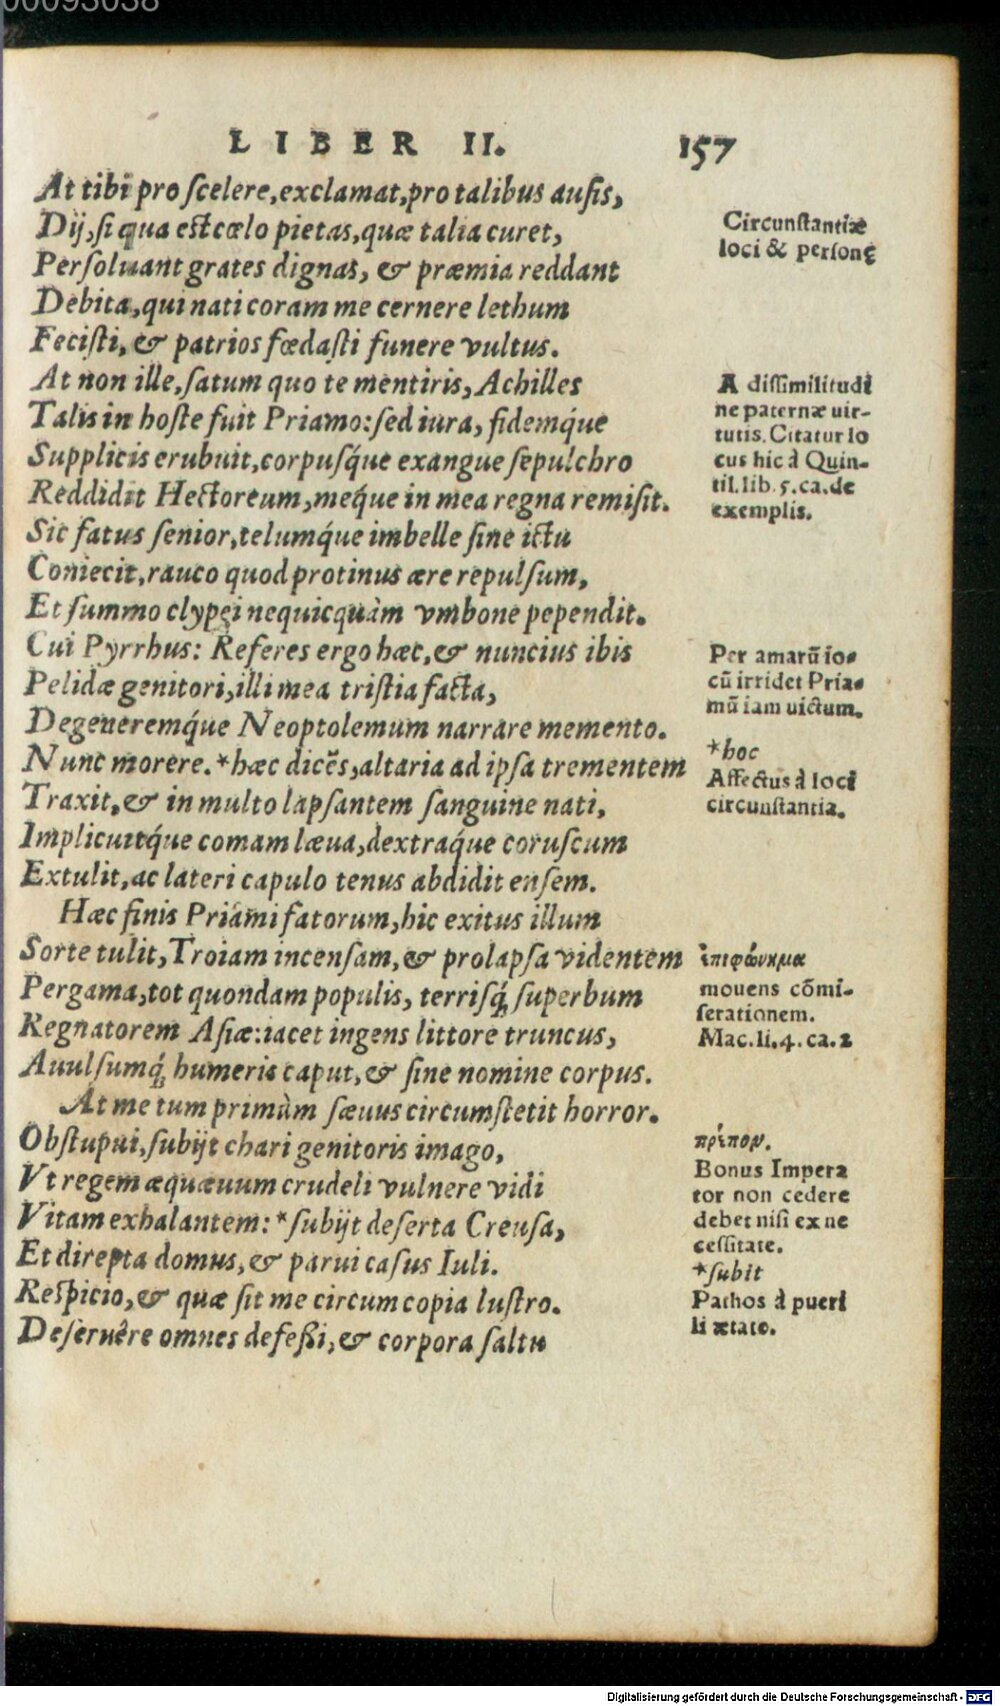 00093038
LIBER II. 157
At tibi pro scelere, exclamat, pro talibus ausis,
Dij, si qua est cœlo pietas, quæ talia curet,
Persoluant grates dignas, & præmia reddant
Debita, qui nati coram me cernere lethum
Fecisti, & patrios fœdasti funere vultus.
At non ille, satum quo te mentiris, Achilles
Talis in hoste fuit Priamo: sed iura, fidemq́ue
Supplicis erubuit, corpusq́ue exangue sepulchro
Reddidit Hectoreum, meq́ue in mea regna remisit.
Sic fatus senior, telumq́ue imbelle sine ictu
Coniecit, rauco quod protinus ære repulsum,
Et summo clypei nequicquàm vmbone pependit.
Cui Pyrrhus: Referes ergo hæc, & nuncius ibis
Pelidæ genitori, illi mea tristia facta,
Degeneremq́ue Neoptolemum narrare memento.
Nunc morere. *hæc dicēs, altaria ad ipsa trementem
Traxit, & in multo lapsantem sanguine nati,
Implicuitq́ue comam læua, dextraq́ue coruscum
Extulit, ac lateri capulo tenus abdidit ensem.
Hæc finis Priami fatorum, hic exitus illum
Sorte tulit, Troiam incensam, & prolapsa videntem
Pergama, tot quondam populis, terrisq́; superbum
Regnatorem Asiæ: iacet ingens littore truncus,
Auulsumq́; humeris caput, & sine nomine corpus.
At me tum primùm sæuus circumstetit horror.
Obstupui, subijt chari genitoris imago,
Vt regem æquæuum crudeli vulnere vidi
Vitam exhalantem: *subijt deserta Creusa,
Et direpta domus, & parui casus Iuli.
Respicio, & quæ sit me circum copia lustro.
Deseruêre omnes defeßi, & corpora saltu
Circunstantiæ
loci & personę
A dissimilitudi
ne paternæ uir-
tutis. Citatur lo
cus hic à Quin-
til. lib. 5. ca. de
exemplis.
Per amarū io-
cū irridet Pria-
mū iam uictum.
*hoc
Affectus à loci
circunstantia.
ἐπιφώνημα
mouens cōmi-
serationem.
Mac. li. 4. ca. 2
πρέπον.
Bonus Impera
tor non cedere
debet nisi ex ne
cessitate.
*subit
Pathos à pueri
li ætate.
Digitalisierung gefördert durch die Deutsche Forschungsgemeinschaft - DFG